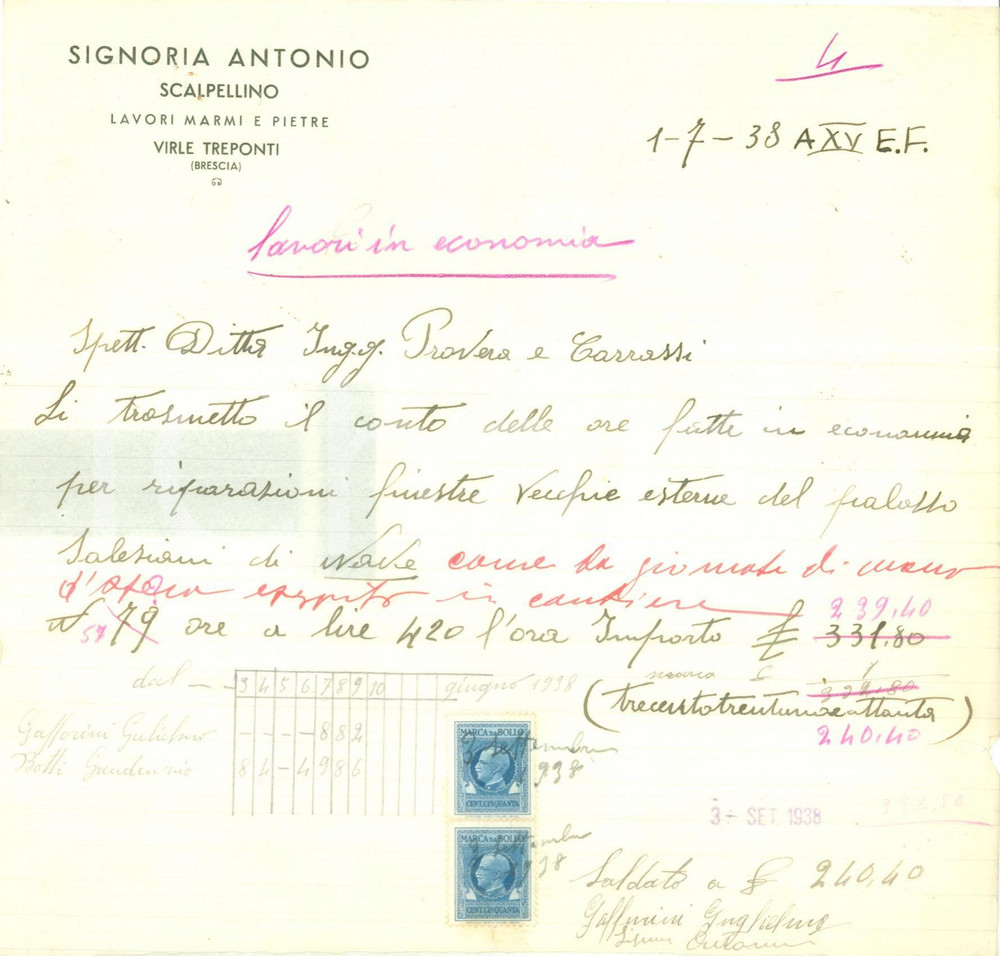 SIGNORIA ANTONIO
SCALPELLINO
LAVORI MARMI E PIETRE
VIRLE TREPONTI
(BRESCIA)
4
1-7-38 A XV E.F.
lavori in economia
Spett. Ditta Ing.g. Provera e Carrassi
Li trasmetto il conto delle ore fatte in economia
per riparazioni finestre vecchie esterne del palasso
Salesiani di Nave come da giornate di mano
d'opera in cantiere 239,40
N 79 57 ore a lire 420 l'ora Importo £ 331,80
marca £ 1
332,80
(trecentotrentunoeottanta)
240,40
dal 3 4 5 6 7 8 9 10 giugno 1938
Gafforini Gulielmo - - - - 8 8 2
Botti Gaudenzio 8 4 - 4 9 8 6
MARCA DA BOLLO
CENT. CINQUANTA
3 settembre 1938
MARCA DA BOLLO
CENT. CINQUANTA
3 settembre 1938
3 - SET. 1938
332,80
Saldato a £ 240,40
Gafforini Guglielmo